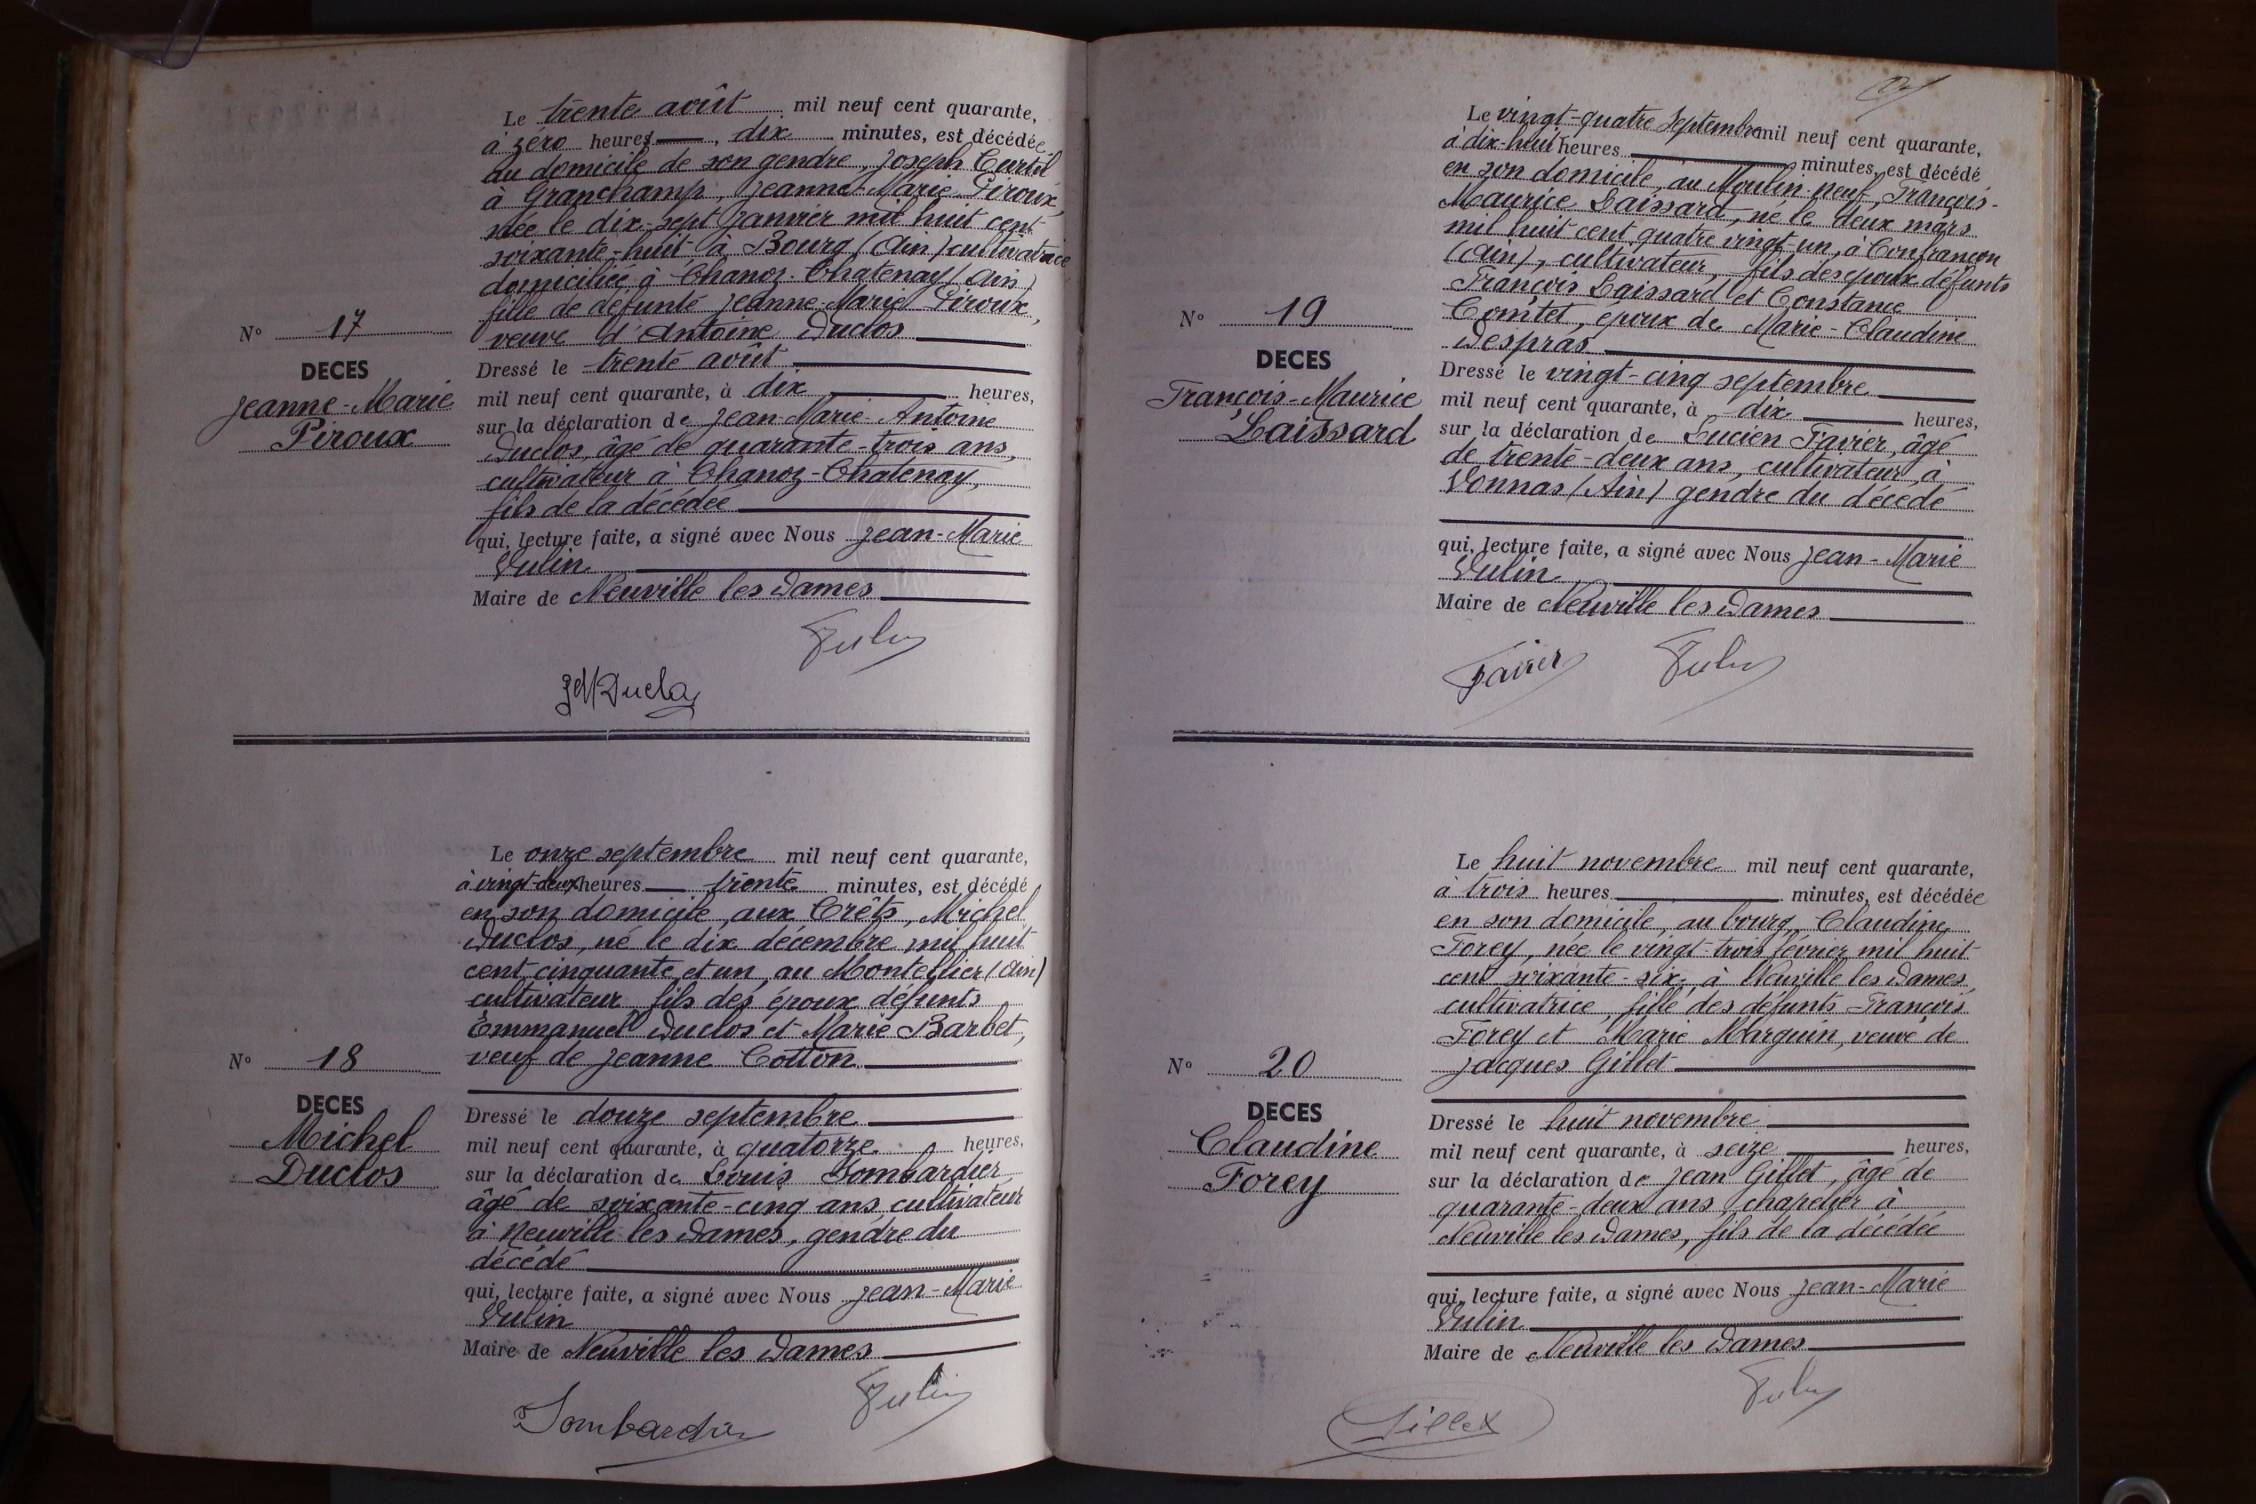 Le trente août mil neuf cent quarante,
à zéro heures, dix minutes, est décédée
au domicile de son gendre, Joseph Curtil
à Granchamp, Jeanne-Marie Piroux,
née le dix-sept janvier mil huit cent
soixante-huit à Bourg (Ain) cultivatrice
domiciliée à Chanoz-Chatenay (Ain)
fille de défunte Jeanne-Marie Piroux,
veuve d'Antoine Duclos
N° 17
DECES
Jeanne-Marie
Piroux
Dressé le trente août
mil neuf cent quarante, à dix heures,
sur la déclaration de Jean-Marie-Antoine
Duclos, âgé de quarante-trois ans,
cultivateur à Chanoz-Chatenay,
fils de la décédée
qui, lecture faite, a signé avec Nous Jean-Marie
Vulin
Maire de Neuville les Dames
Vulin
JM Duclos
Le onze septembre mil neuf cent quarante,
à vingt-deux heures trente minutes, est décédé
en son domicile, aux Crêts, Michel
Duclos, né le dix décembre mil huit
cent cinquante et un, au Montellier (Ain)
cultivateur fils des époux défunts
Emmanuel Duclos et Marie Barbet,
veuf de Jeanne Cotton
N° 18
DECES
Michel
Duclos
Dressé le douze septembre
mil neuf cent quarante, à quatorze heures,
sur la déclaration de Louis Lombardier
âgé de soixante-cinq ans cultivateur
à Neuville les Dames, gendre du
décédé
qui, lecture faite, a signé avec Nous Jean-Marie
Vulin
Maire de Neuville les Dames
Vulin
Lombardier
Le vingt-quatre septembre mil neuf cent quarante,
à dix-huit heures minutes, est décédé
en son domicile, au Moulin neuf, François-
Maurice Laissard, né le deux mars
mil huit cent quatre vingt-un, à Confrançon
(Ain), cultivateur, fils des époux défunts
François Laissard et Constance
Comtet, époux de Marie-Claudine
Despras
N° 19
DECES
François-Maurice
Laissard
Dressé le vingt-cinq septembre
mil neuf cent quarante, à dix heures,
sur la déclaration de Lucien Favier, âgé
de trente-deux ans, cultivateur à
Vonnas (Ain) gendre du décédé
qui, lecture faite, a signé avec Nous Jean-Marie
Vulin
Maire de Neuville les Dames
Favier Vulin
Le huit novembre mil neuf cent quarante,
à trois heures minutes, est décédée
en son domicile, au bourg, Claudine
Forey, née le vingt-trois février mil huit
cent soixante-six, à Neuville les Dames,
cultivatrice, fille des défunts François
Forey et Marie Marguin, veuve de
Jacques Gillet
N° 20
DECES
Claudine
Forey
Dressé le huit novembre
mil neuf cent quarante, à seize heures,
sur la déclaration de Jean Gillet, âgé de
quarante-deux ans chapelier à
Neuville les Dames, fils de la décédée
qui, lecture faite, a signé avec Nous Jean-Marie
Vulin
Maire de Neuville les Dames
Vulin
Gillet